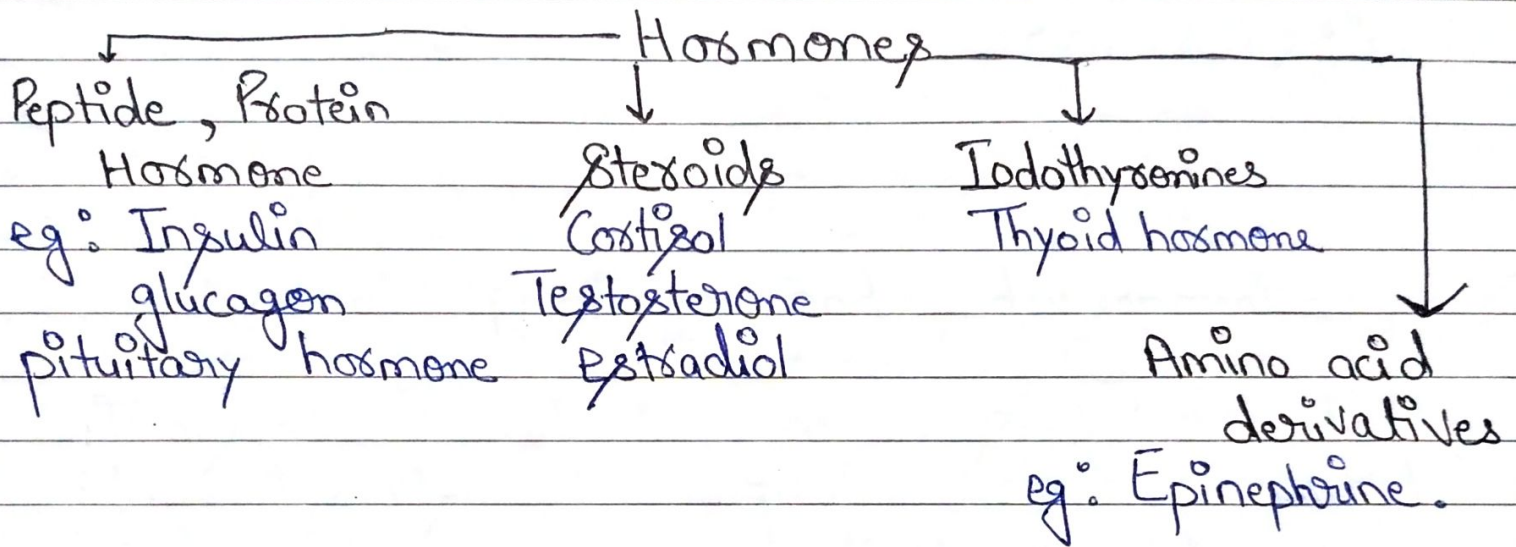 Hormones
Peptide, Protein
Hormone
eg: Insulin
glucagon
pituitary hormone
Steroids
Cortisol
Testosterone
Estradiol
Iodothyronines
Thyoid hormone
Amino acid
derivatives
eg: Epinephrine.